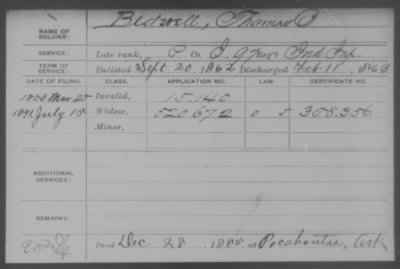 NAME OF SOLDIER: Bedwell, Thomas B
SERVICE: Late rank, P Co. I, 97 Reg't Ind Inf
TERM OF SERVICE: Enlisted Sept. 20, 1862 Discharged Feb 11, 1863
DATE OF FILING. CLASS. APPLICATION NO. LAW. CERTIFICATE NO.
1863 Mar 25 Invalid, 15.140
1891 July 15 Widow, 520672 358.356
Minor,
ADDITIONAL SERVICES:
REMARKS:
Died Dec. 28, 1880, at Pocahontas, Ark